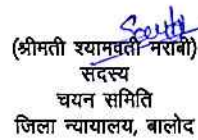 (श्रीमती श्यामवती मरावी)
सदस्य
चयन समिति
जिला न्यायालय, बालोद